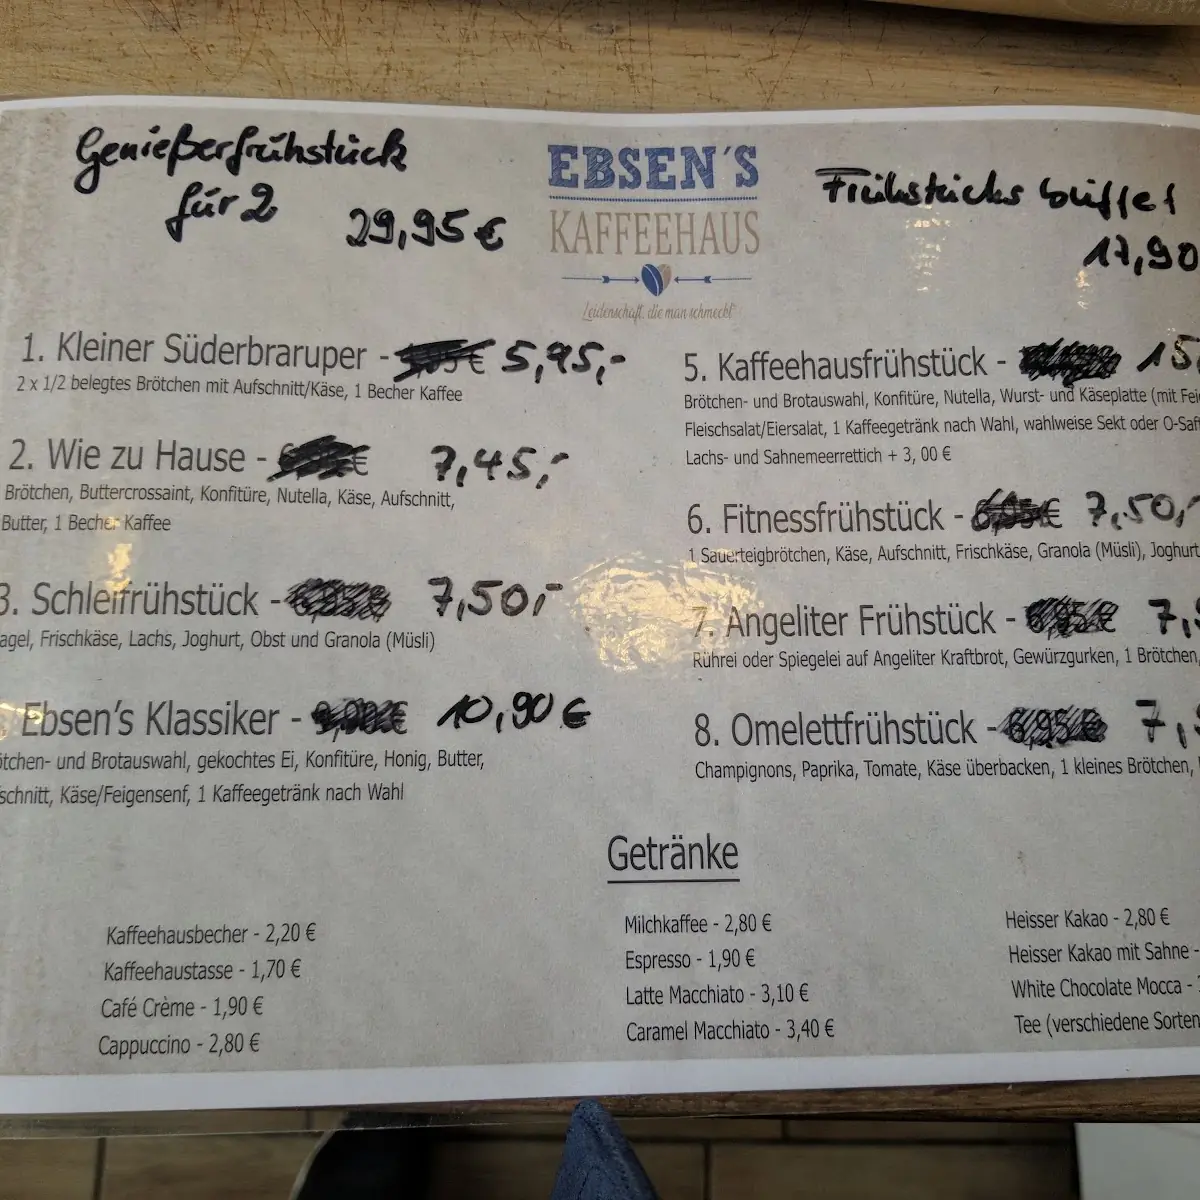 Genießerfrühstück
für 2 29,95 €
EBSEN´S
KAFFEEHAUS
Leidenschaft, die man schmeckt!
Frühstücksbüffet
17,90
1. Kleiner Süderbraruper - 5,95,-
2 x 1/2 belegtes Brötchen mit Aufschnitt/Käse, 1 Becher Kaffee
2. Wie zu Hause - 7,45,-
Brötchen, Buttercrossaint, Konfitüre, Nutella, Käse, Aufschnitt,
Butter, 1 Becher Kaffee
3. Schleifrühstück - 6,95€ 7,50,-
agel, Frischkäse, Lachs, Joghurt, Obst und Granola (Müsli)
Ebsen's Klassiker - 9,90€ 10,90 €
ötchen- und Brotauswahl, gekochtes Ei, Konfitüre, Honig, Butter,
schnitt, Käse/Feigensenf, 1 Kaffeegetränk nach Wahl
5. Kaffeehausfrühstück - 15,
Brötchen- und Brotauswahl, Konfitüre, Nutella, Wurst- und Käseplatte (mit Fei
Fleischsalat/Eiersalat, 1 Kaffeegetränk nach Wahl, wahlweise Sekt oder O-Saf
Lachs- und Sahnemeerrettich + 3, 00 €
6. Fitnessfrühstück - 6,95€ 7,50,-
1 Sauerteigbrötchen, Käse, Aufschnitt, Frischkäse, Granola (Müsli), Joghurt
7. Angeliter Frühstück - 6,95€ 7,
Rührei oder Spiegelei auf Angeliter Kraftbrot, Gewürzgurken, 1 Brötchen,
8. Omelettfrühstück - 6,95€ 7,
Champignons, Paprika, Tomate, Käse überbacken, 1 kleines Brötchen,
Getränke
Kaffeehausbecher - 2,20 €
Kaffeehaustasse - 1,70 €
Café Crème - 1,90 €
Cappuccino - 2,80 €
Milchkaffee - 2,80 €
Espresso - 1,90 €
Latte Macchiato - 3,10 €
Caramel Macchiato - 3,40 €
Heisser Kakao - 2,80 €
Heisser Kakao mit Sahne -
White Chocolate Mocca -
Tee (verschiedene Sorten